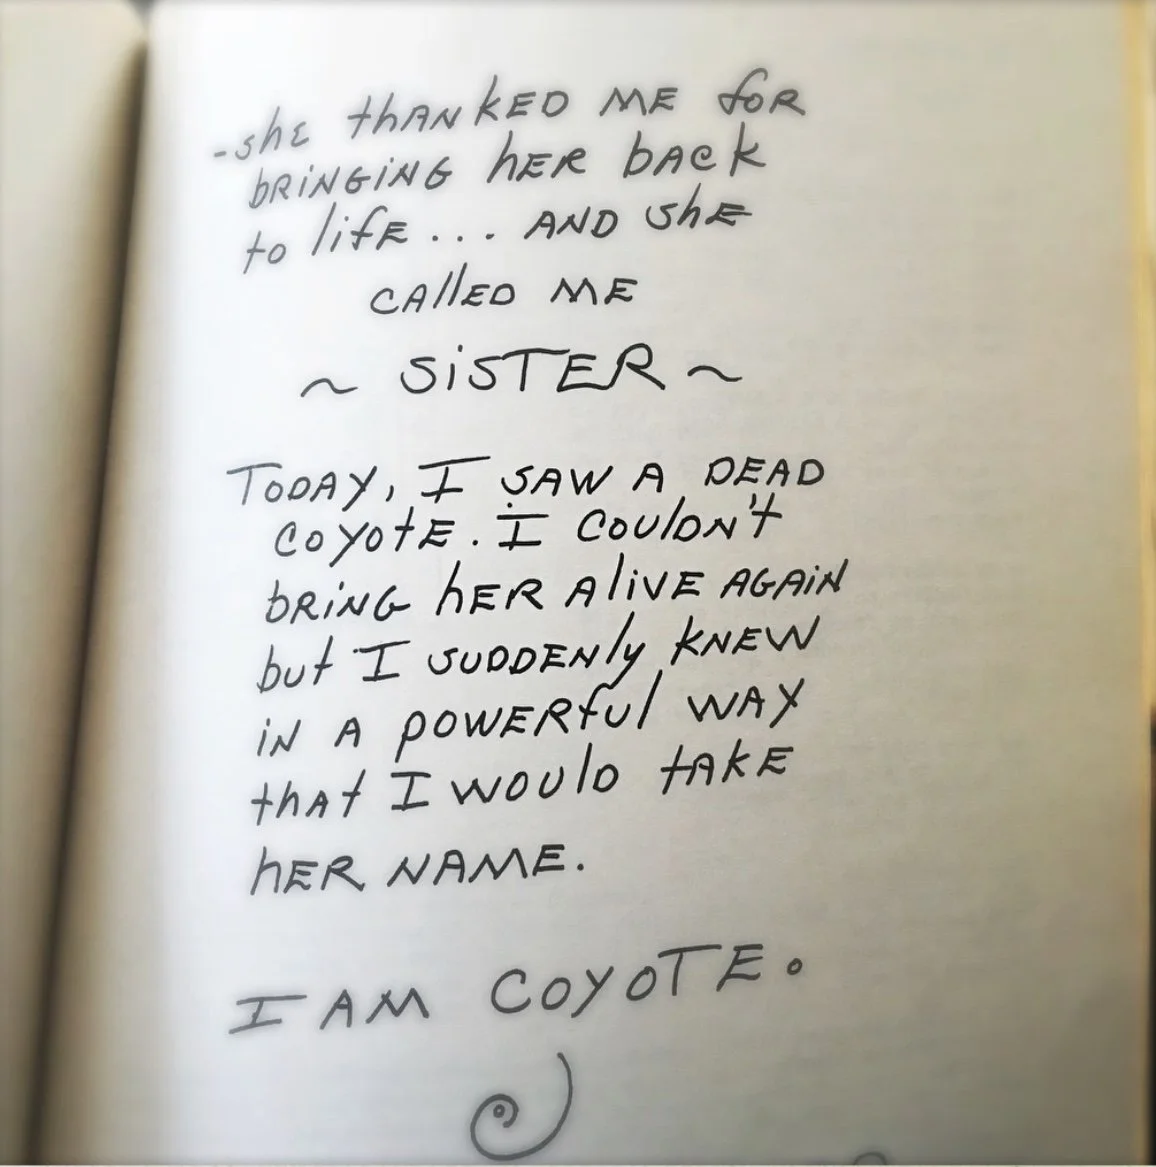 -she thANKED ME foR
bRiNGiNG hER bACk
to lifE ... AND shE
CAllED ME
~ SiSTER ~
TODAY, I SAW A DEAD
COYOtE. I COUlDN't
bRiNG hER AliVE AGAiN
but I SUDDENly KNEW
iN A pOWERful WAY
thAt I WOUlD tAKE
hER NAME.
I AM COYOTE.